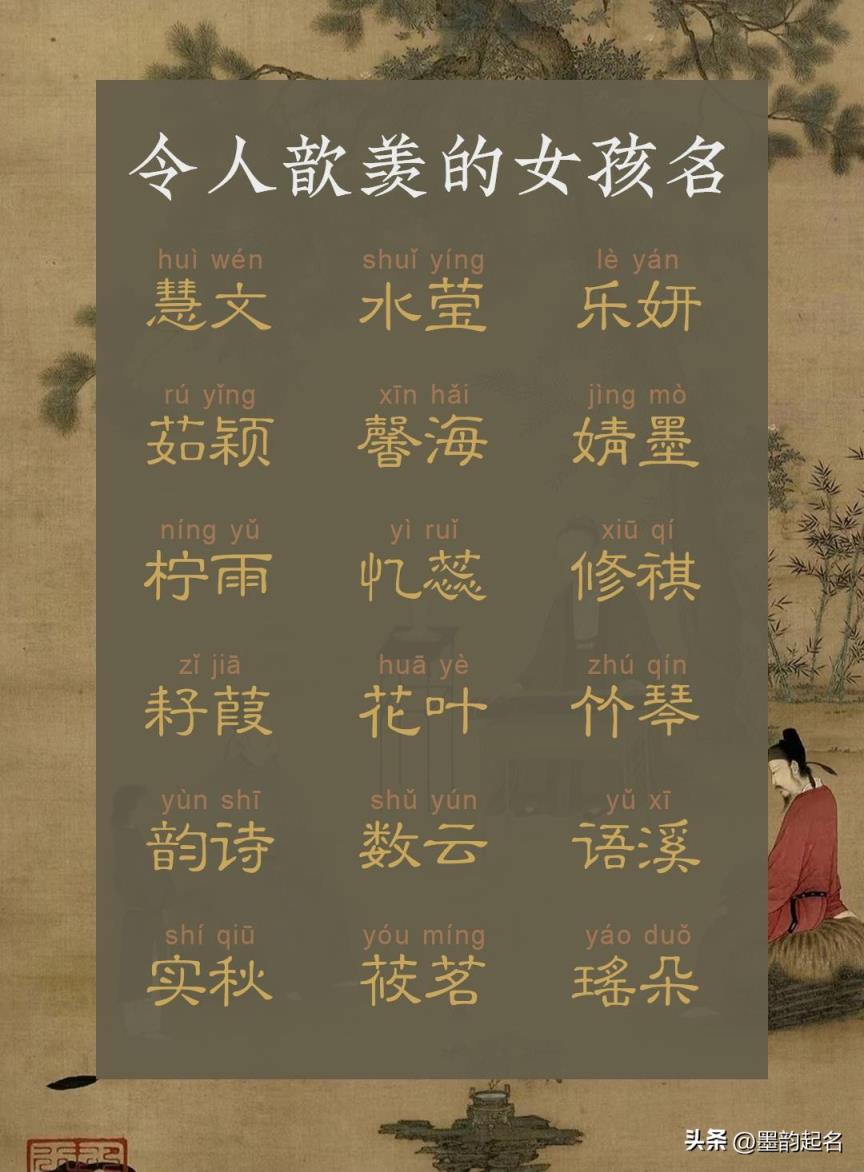 令人歆羡的女孩名
huì wén shuǐ yíng lè yán
慧文 水莹 乐妍
rú yǐng xīn hǎi jìng mò
茹颖 馨海 婧墨
níng yǔ yì ruǐ xiū qí
柠雨 忆蕊 修祺
zǐ jiā huā yè zhú qín
耔葭 花叶 竹琴
yùn shī shǔ yún yǔ xī
韵诗 数云 语溪
shí qiū yóu míng yáo duǒ
实秋 莜茗 瑶朵
头条 @墨韵起名